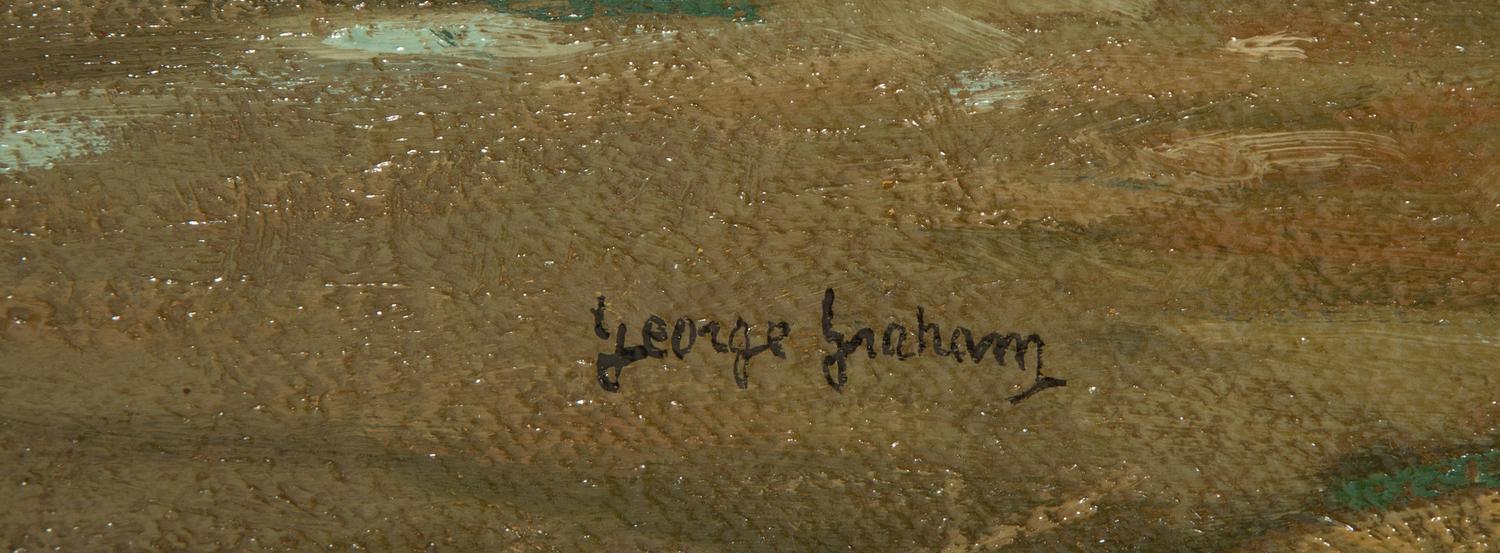 George Graham